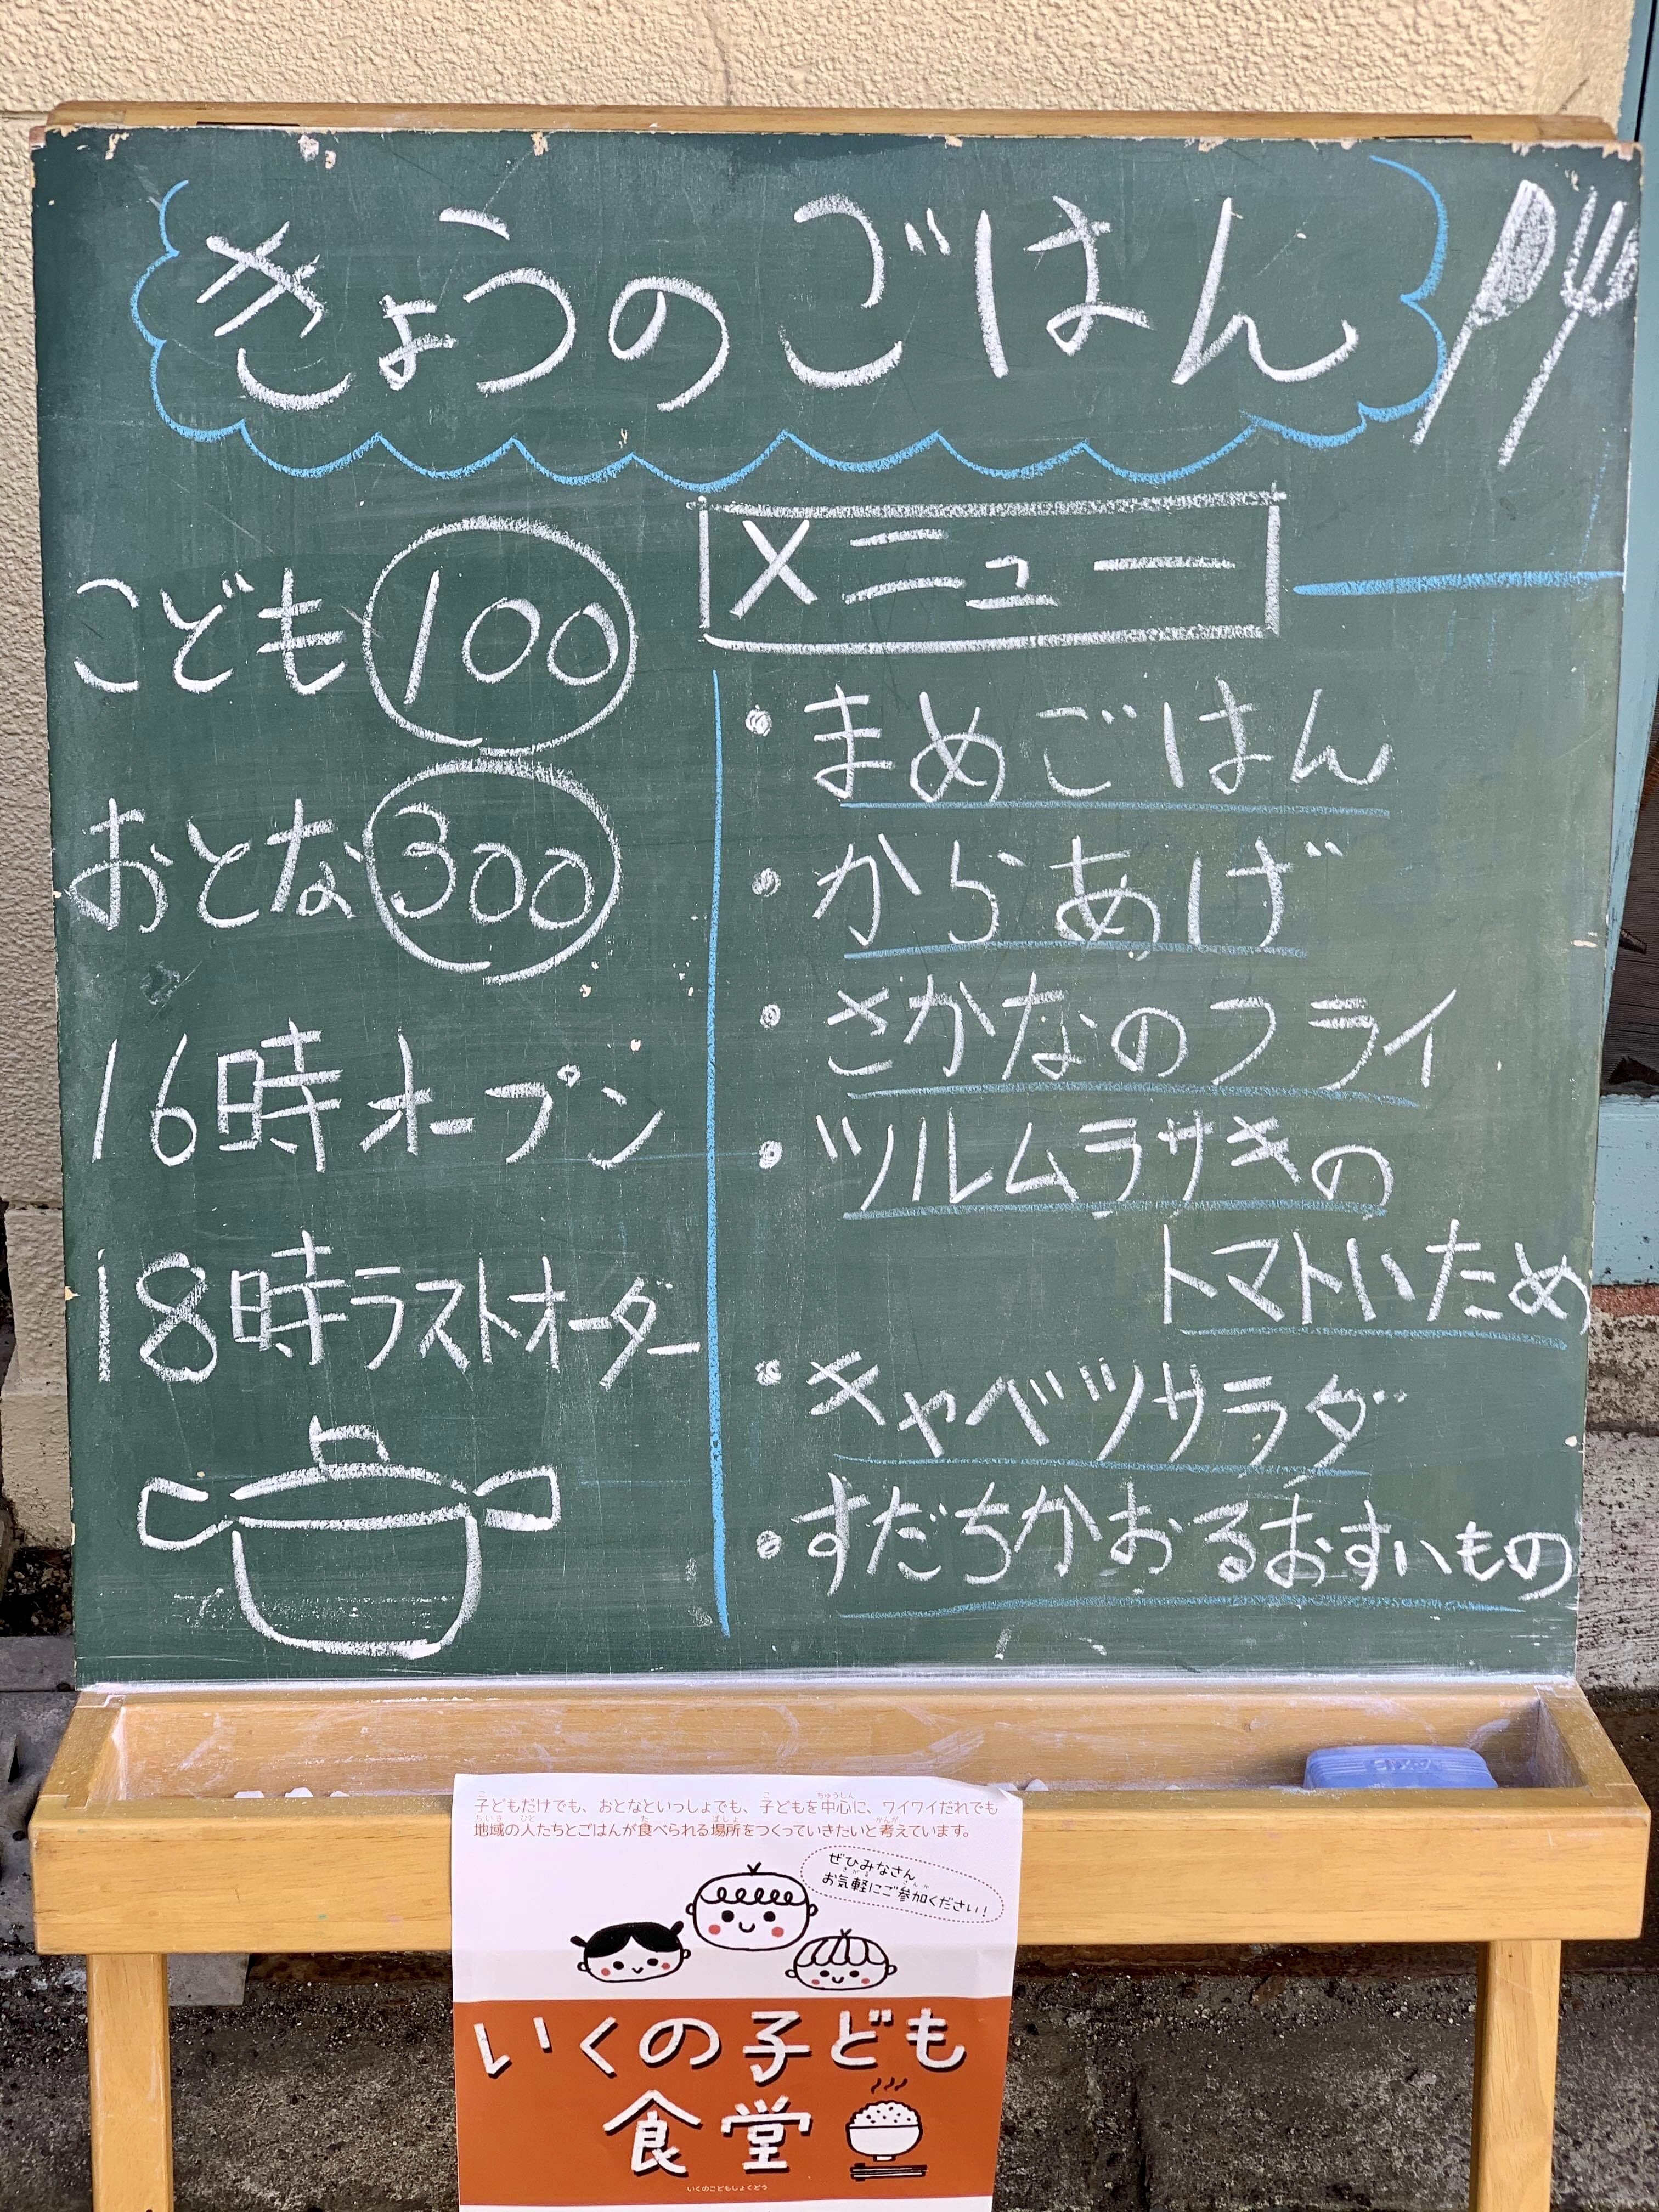 きょうのごはん
こども 100
おとな 300
16時オープン
18時ラストオーダー
メニュー
・まめごはん
・からあげ
・さかなのフライ
・ツルムラサキの
トマトいため
・キャベツサラダ
・すだちかおるおすいもの
子どもだけでも、おとなといっしょでも、子どもを中心に、ワイワイだれでも
地域の人たちとごはんが食べられる場所をつくっていきたいと考えています。
ぜひみなさん
お気軽にご参加ください!
いくの子ども
食堂
いくのこどもしょくどう